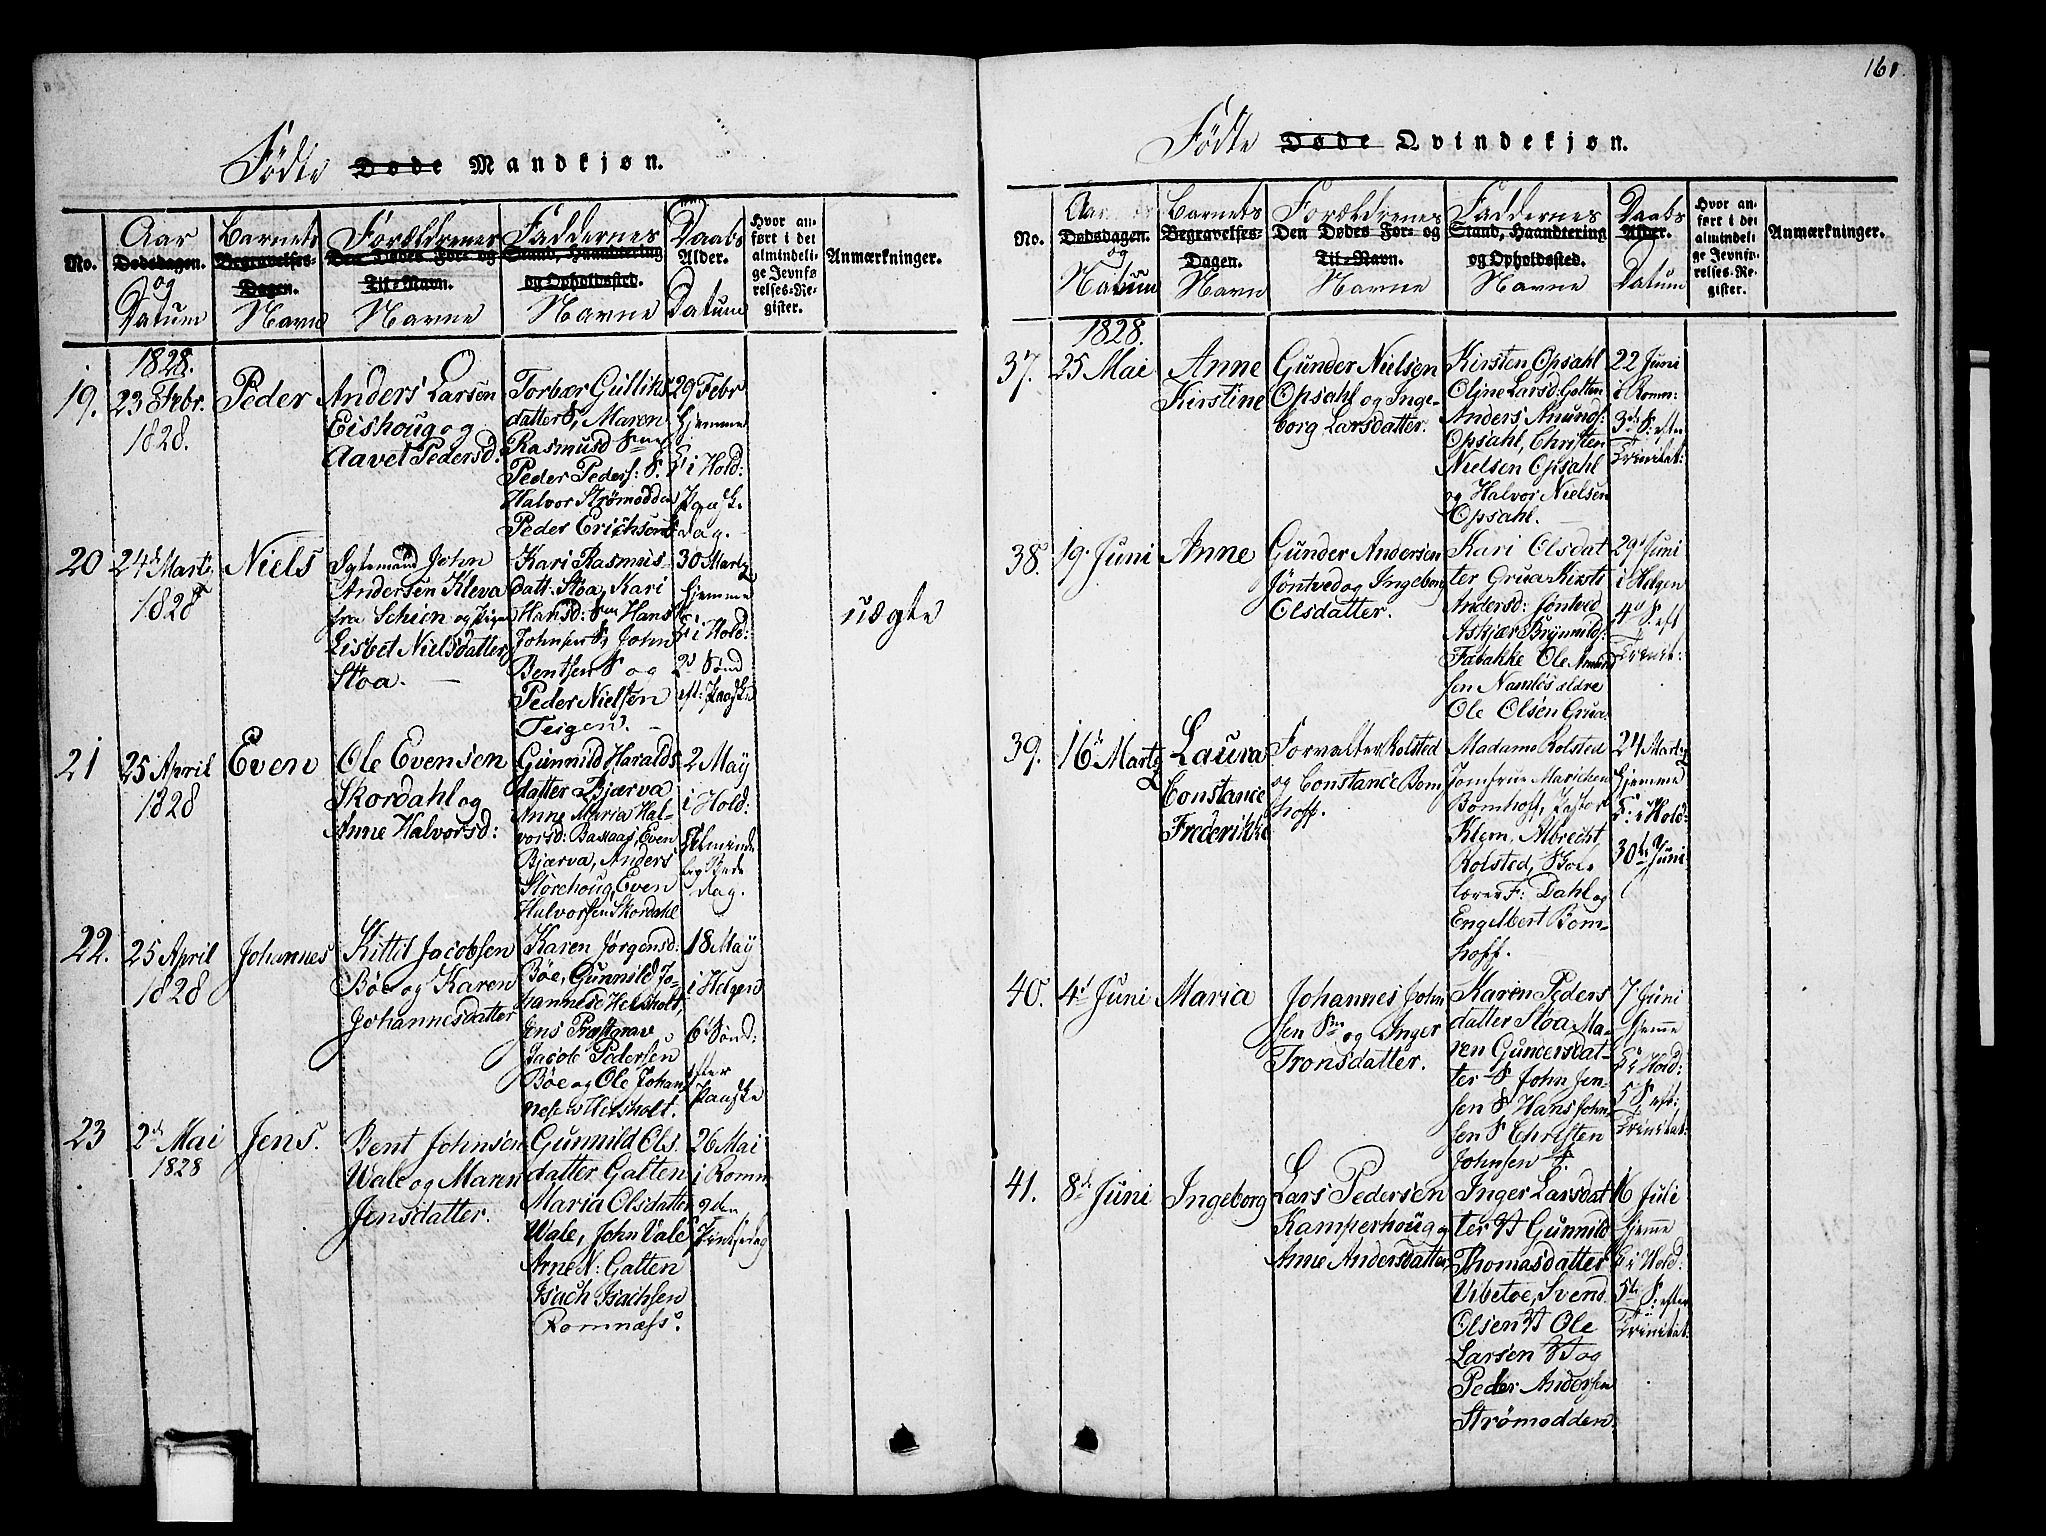 161.
Födte Døde Mandkjøn.
No.
Aar
Dødsdagen.
og
Datum
Barnets
Begravelses-
Dagen.
Navn
Forældrenes
Den Dødes For- og
Til-Navn.
Navne
Faddernes
Stand, Haandtering
og Opholdssted.
Navne
Daabs
Alder.
Datum
Hvor an-
ført i det
almindeli-
ge Jevnfø-
relses-Re-
gister.
Anmærkninger.
1828.
19.
23 Febr.
1828.
Peder
Anders Larsen
Eishoug og
Aavet Pedersd.
Torbær Gulliks
datter S, Maren
Rasmusd
Peder Peders: S.
Halvor Strømodden
Peder Erichsen
29 Febr
hjemme
i Hold:
Paaske
dag.
20
24d Marty
1828
Niels
John
Andersen Kleva
fra Schien og Pige
Lisbet Nielsdatter
Stoa.
Kari Rasmus-
datt: Stoa, Kari
Hansd: Sm Hans
Johnsen S, John
Bentsen S og
Peder Nielsen
Teigen.
30 Marty
hjemme
i Hold:
2d Sønd
eft: Paaske
uægte
21
25 April
1828
Even
Ole Evensen
Skordahl og
Anne Halvorsd:
Gunnild Haralds
datter Bjærva
Anne Maria Hal-
vorsd: Baxaas, Even
Bjærva, Anders
Storehoug, Even
Halvorsen Skordahl
2 May
i Hold:
Alminde
lig Bede
dag.
22.
25 April
1828
Johannes
Kittil Jacobsen
Bøe og Karen
Johannesdatter
Karen Jørgensd:
Bøe, Gunnild Jo-
hannesd Helsholt,
Jens Præstgrav
Jacob Pedersen
Bøe og Ole Johan-
nesen Helsholt.
18 May
i Helgen
6te Sønd:
efter
Paaske
23
2d Mai
1828
Jens.
Bent Johnsen
Vale og Maren
Jensdatter.
Gunnild Ols
datter Galten
Maria Olsdatter
Wale, John Vale
Arne N: Galten
Isach Isachsen
Romnæss.
26 Mai
i Romn
2den
Pintsedag
Födte Døde Qvindekjøn.
No.
Aar
Dødsdagen.
og
Datum
Barnets
Begravelses-
Dagen.
Navn
Forældrenes
Den Dødes For- og
Til-Navn.
Navne
Faddernes
Stand, Haandtering
og Opholdssted.
Navne
Daabs
Alder.
Datum
Hvor an-
ført i det
almindeli-
ge Jevnfø-
relses-Re-
gister.
Anmærkninger.
1828.
37.
25 Mai
Anne
Kirstine
Gunder Nielsen
Opsahl og Inge-
borg Larsdatter.
Kirsten Opsahl
Oline Larsd: Galten
Anders Amunds:
Opsahl, Christen
Nielsen Opsahl
og Halvor Nielsen
Opsahl.
22 Juni
i Romn:
3de S: efter
Trinitat:
38.
19 Juni
Anne
Gunder Andersen
Jöntved og Ingeborg
Olsdatter.
Kari Olsdat
ter Grua Kirsti
Andersd: Jöntved
Askjær Brynnilds:
Fabakke Ole Amund
sen Namløs ældre
Ole Olsen Grua.
29 Juni
i Helgen
4d S: eft
Trinit:
39.
16d Marty
Laura
Constance
Frederikke
Forvalter Rolsted
og Constance Bom
hoff.
Madame Rolsted
Jomfrue Marichen
Bomhoff, Pastor
Klem, Albrecht
Rolsted, Skoe-
lærer F: Dahl og
Engelbert Bom-
hoff.
24 Marty
hjemme
i Hold:
30te Juni
40.
4d Juni
Maria
Johannes John
sen Sm og Inger
Tronsdatter.
Karen Peders
datter Stoa Ma-
ren Gundersdat-
ter S John Jen-
sen S Hans John
sen S Christen
Johnsen S.
7 Juni
hjemme
i Hold:
5 S. eft:
Trinitat:
41.
8d Juni
Ingeborg
Lars Pedersen
Kamperhoug og
Anne Andersdatter
Inger Larsdat
ter Gunnild
Thomasdatter
Vibetoe, Svend
Olsen Ole
Larsen og
Peder Andersen
Strømodden.
6 Juli
hjemme
i Hold:
5te S: efter
Trinitat: